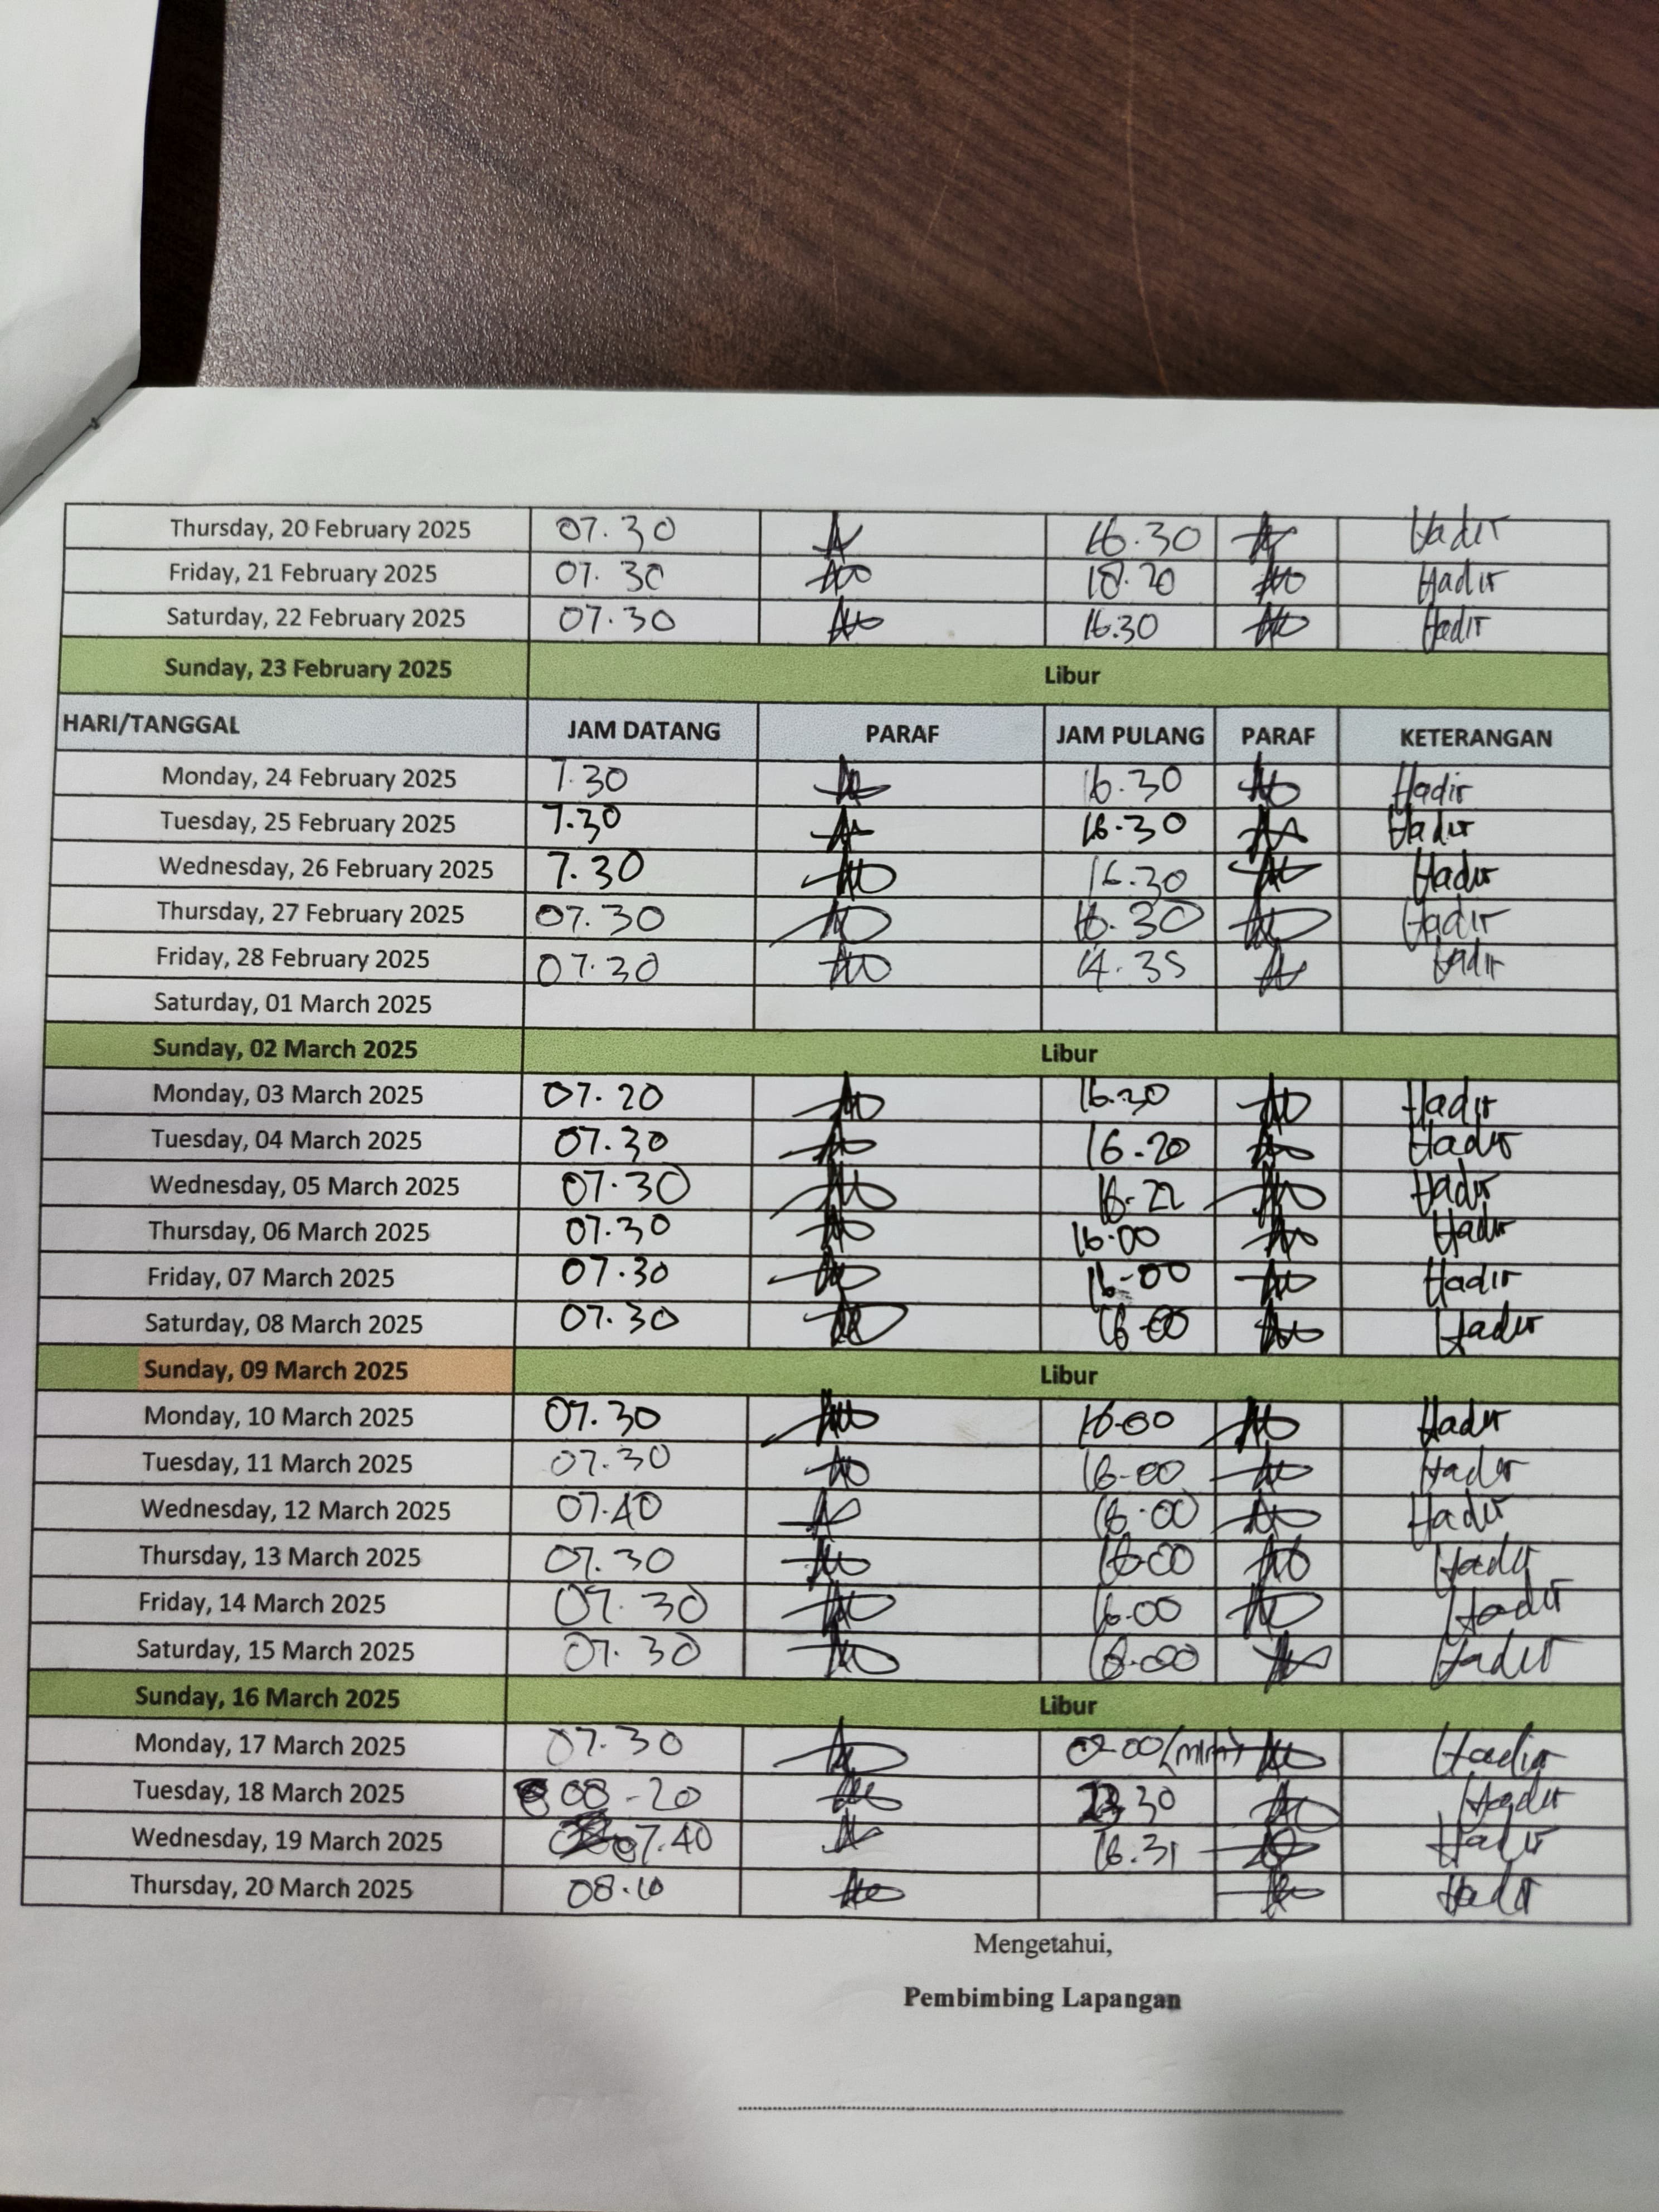 Thursday, 20 February 2025 07.30 16.30 Hadir
Friday, 21 February 2025 07.30 18.20 Hadir
Saturday, 22 February 2025 07.30 16.30 Hadir
Sunday, 23 February 2025 Libur
HARI/TANGGAL JAM DATANG PARAF JAM PULANG PARAF KETERANGAN
Monday, 24 February 2025 7.30 16.30 Hadir
Tuesday, 25 February 2025 7.30 16.30 Hadir
Wednesday, 26 February 2025 7.30 16.30 Hadir
Thursday, 27 February 2025 07.30 16.30 Hadir
Friday, 28 February 2025 07.30 14.35 Hadir
Saturday, 01 March 2025
Sunday, 02 March 2025 Libur
Monday, 03 March 2025 07.20 16.30 Hadir
Tuesday, 04 March 2025 07.30 16.20 Hadir
Wednesday, 05 March 2025 07.30 16-22 Hadir
Thursday, 06 March 2025 07.30 16.00 Hadir
Friday, 07 March 2025 07.30 16-00 Hadir
Saturday, 08 March 2025 07.30 16-00 Hadir
Sunday, 09 March 2025 Libur
Monday, 10 March 2025 07.30 16-00 Hadir
Tuesday, 11 March 2025 07.30 16-00 Hadir
Wednesday, 12 March 2025 07.40 16.00 Hadir
Thursday, 13 March 2025 07.30 16-00 Hadir
Friday, 14 March 2025 07.30 16.00 Hadir
Saturday, 15 March 2025 07.30 16-00 Hadir
Sunday, 16 March 2025 Libur
Monday, 17 March 2025 07.30 Hadir
Tuesday, 18 March 2025 08-20 Hadir
Wednesday, 19 March 2025 07.40 16.31 Hadir
Thursday, 20 March 2025 08.10 Hadir
Mengetahui,
Pembimbing Lapangan